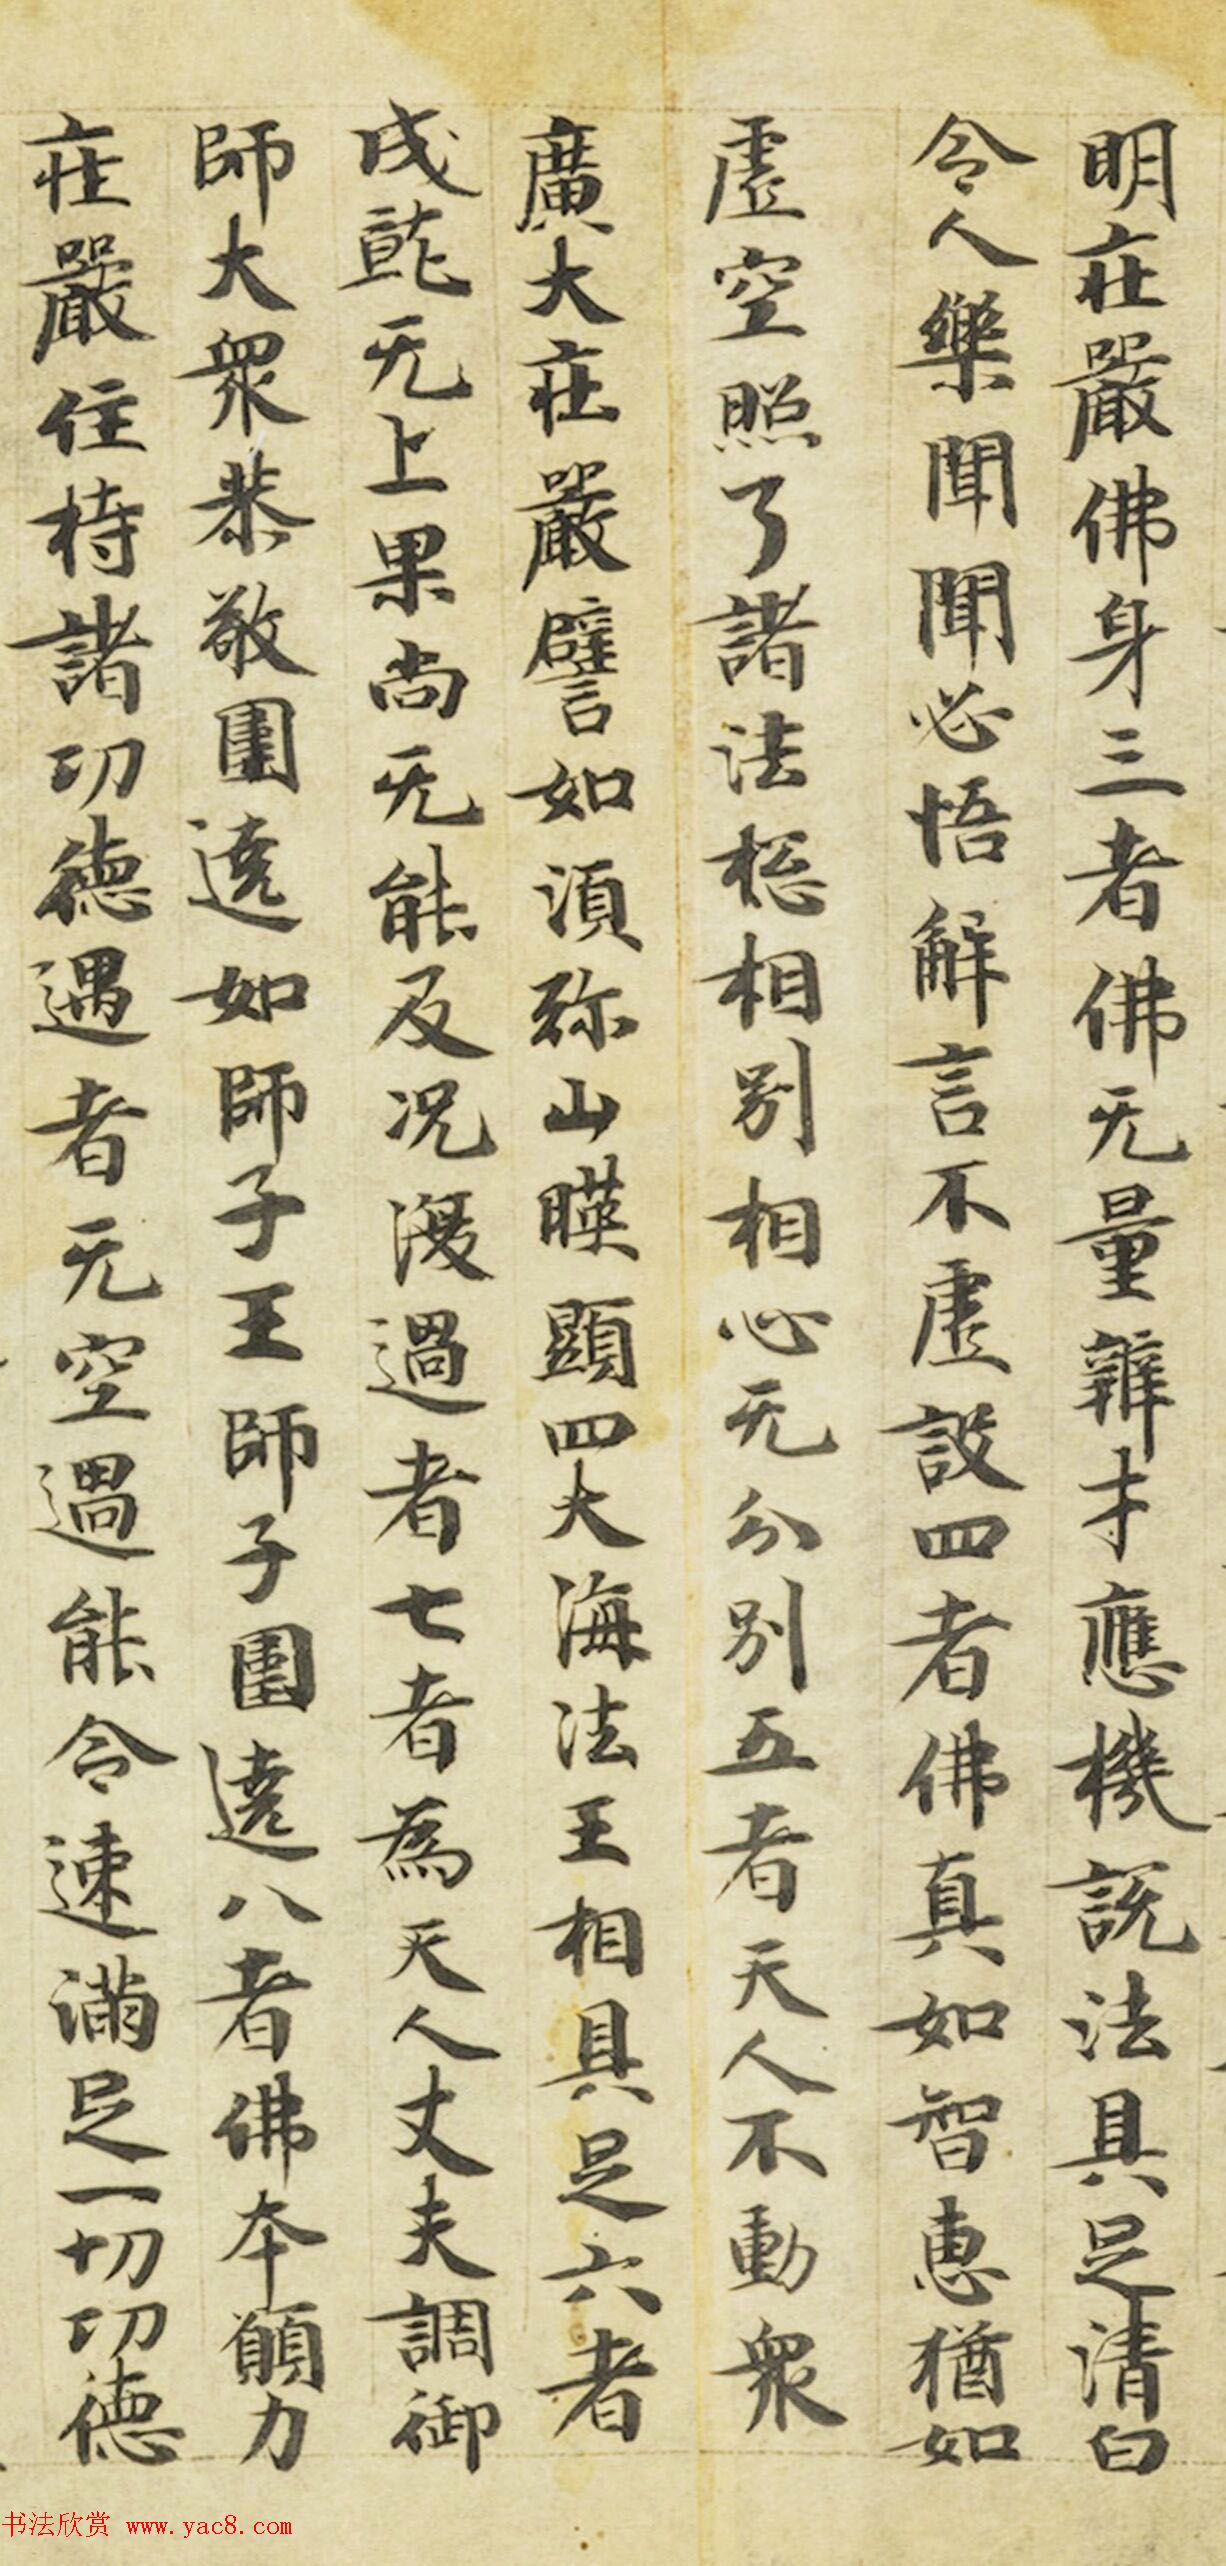 明莊嚴佛身三者佛无量辯才應機說法具足清白
令人樂聞聞必悟解言不虛設四者佛真如智惠猶如
虛空照了諸法揔相別相心无分別五者天人不動衆
廣大莊嚴譬如湏弥山暎顯四大海法王相具足六者
成就无上果尚无能及况復過者七者為天人丈夫調御
師大衆恭敬圍遶如師子王師子圍遶八者佛本願力
莊嚴住持諸功德遇者无空過能令速滿足一切功德
书法欣赏 www.yac8.com